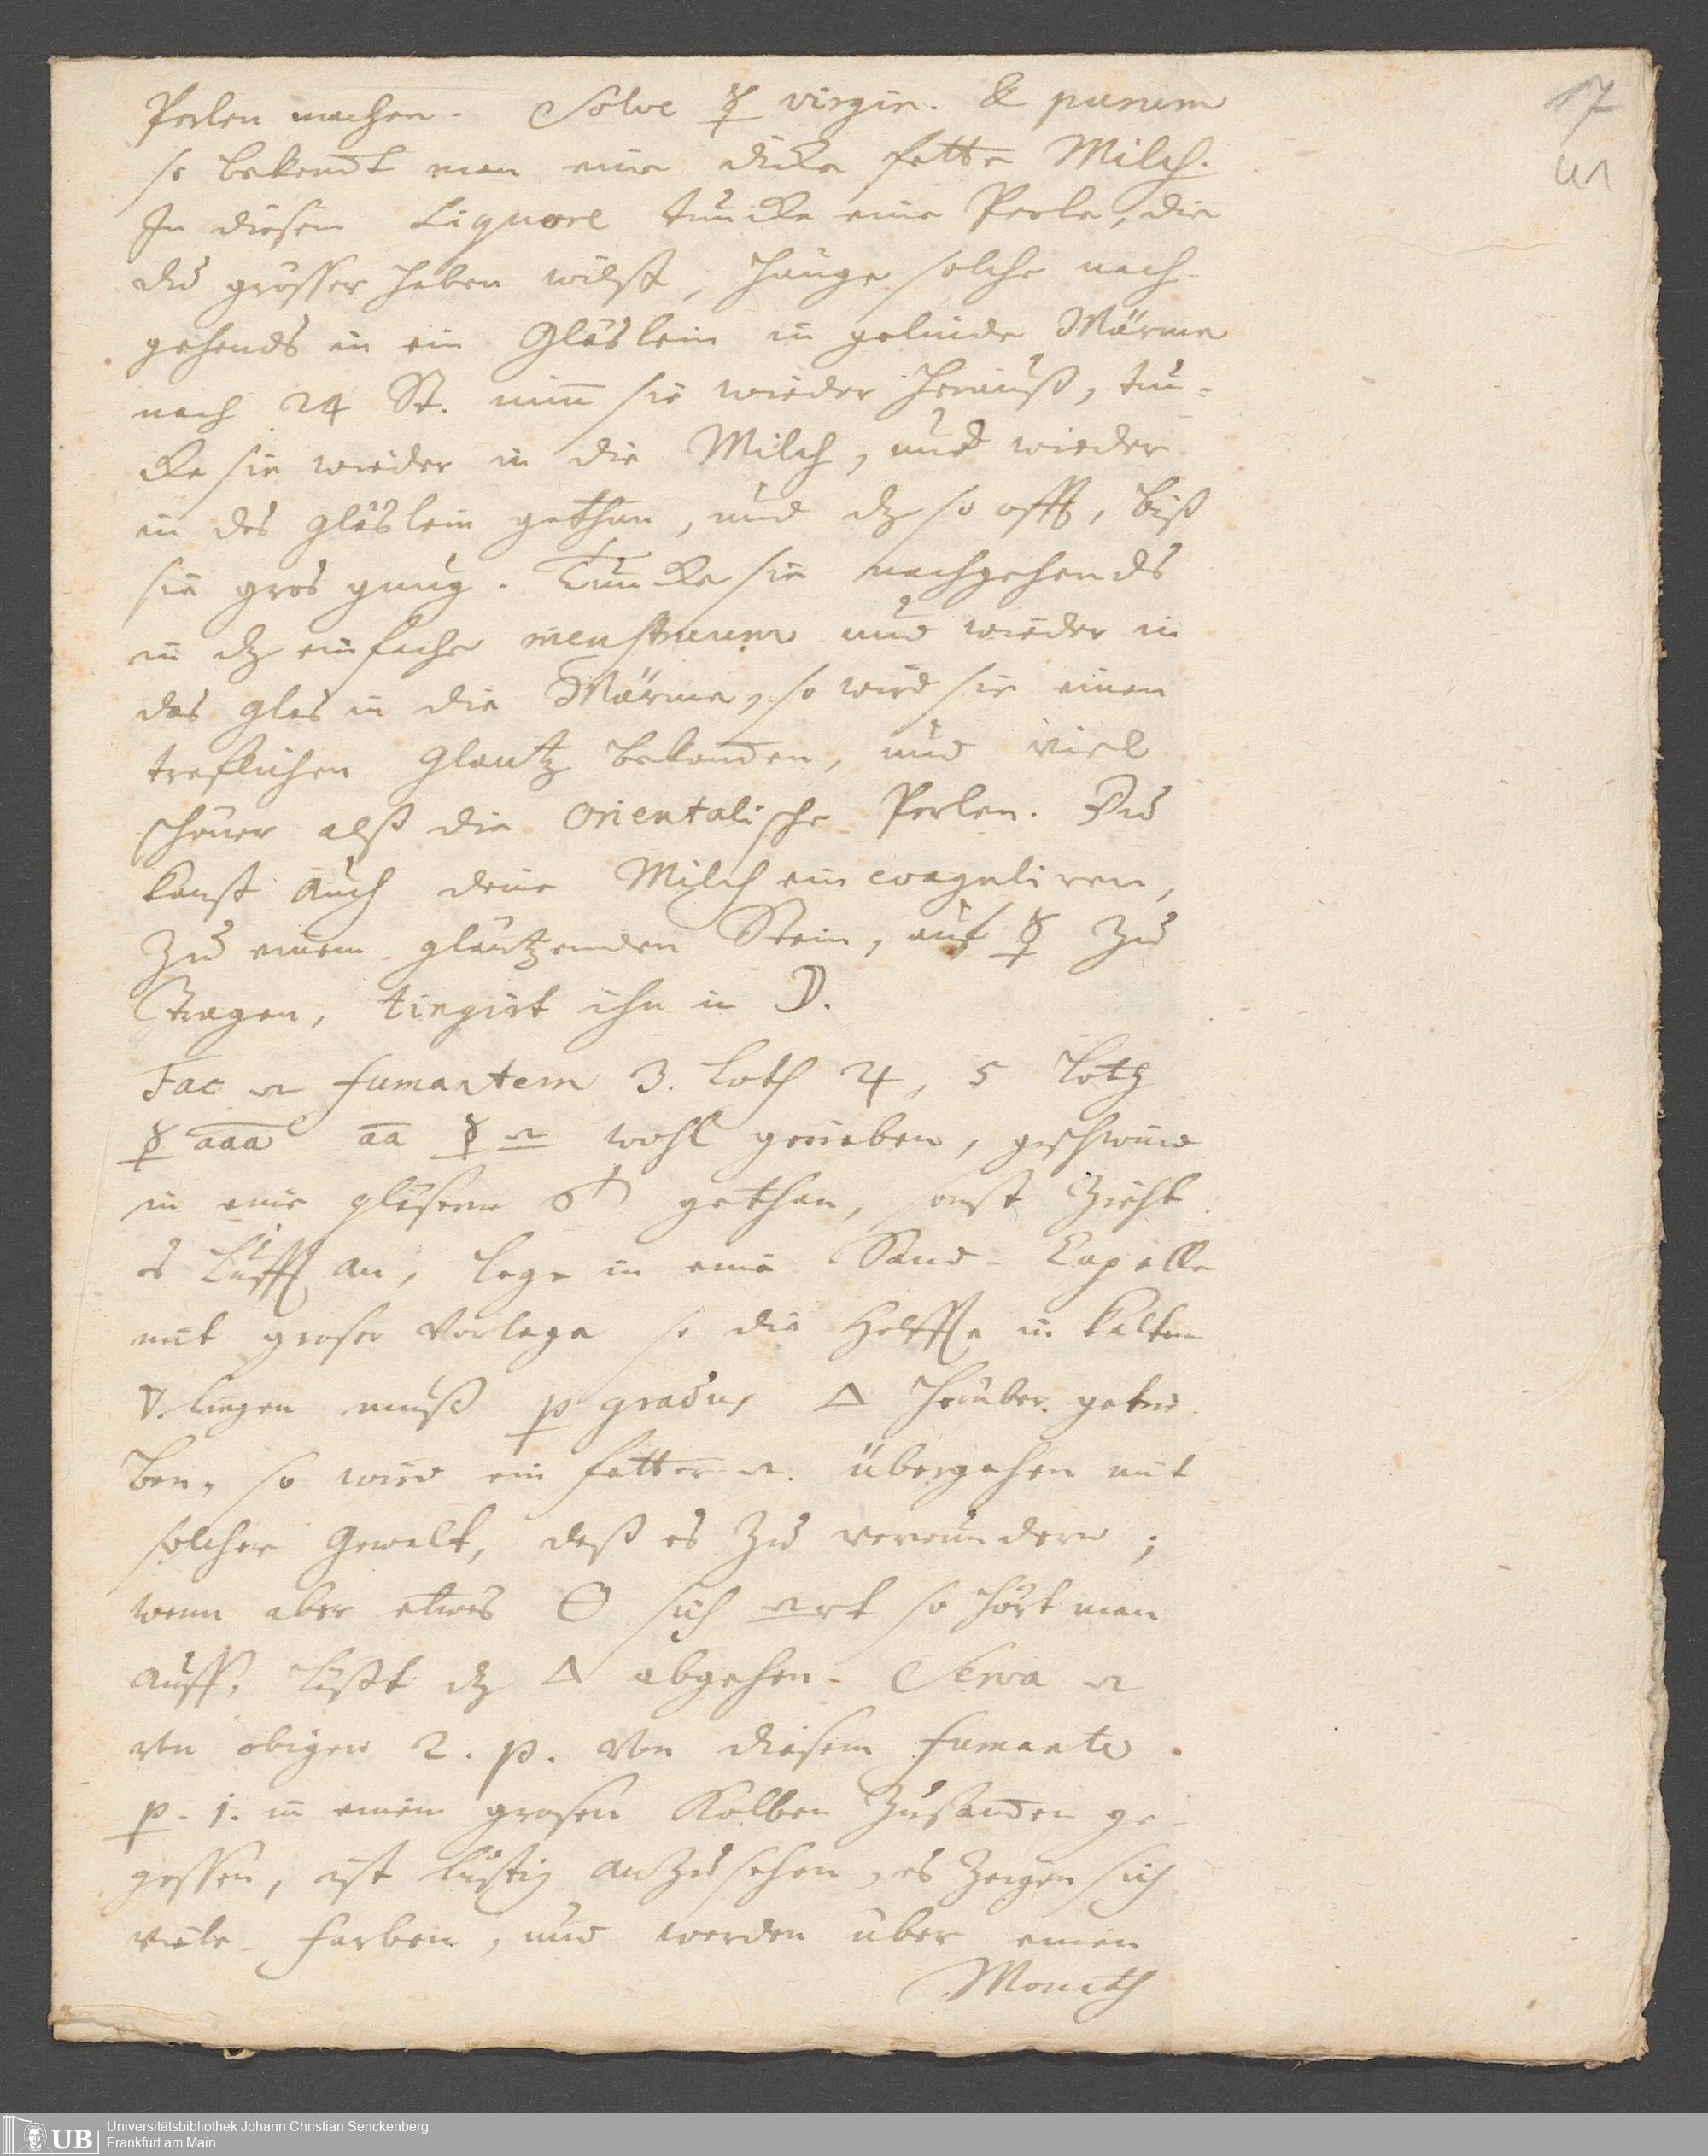 17
41
Perlen machen. Solve ☿ virgin. & purum
so bekom̅t man eine dicke fette Milch.
In diesem Liquore tuncke eine Perle, die
du grösser haben wilst, hange solche nach-
gehends in ein Gläslein in gelinde Wärme
nach 24 St. nim̅ sie wieder herauß, tun-
cke sie wieder in die Milch, und wieder
in das gläslein gethan, und dz so offt, biß
sie gros gnug. Tuncke sie nachgehends
in dz einfache menstruum und wieder in
das glas in die Wärme, so wird sie einen
treflichen Glantz bekom̅en, und viel
schöner alß die Orientalische Perlen. Du
kanst auch deine Milch ein coaguliren,
zu einem gläntzenden Stein, auf ☿ zu
tragen, tingirt ihn in ☽.
Fac fumantem 3. loth 4, 5 loth
☿ aaa aa ☿ wohl gerieben, geschwind
in eine gläserne gethan, sonst zieht
es Lufft an, lege in eine Sand-Capelle
mit groser Vorlage so die Helffte in kaltem
🜄 liegen muß p gradus 🜂 herüber getrie-
ben, so wird ein fetter übergehen mit
solcher Gewalt, daß es zu verwundern;
wenn aber etwas 🜔 sich so hört man
auff, läßt dz 🜂 abgehen. Serva
von obigen 2. p. von diesem fumante.
p. 1. in einem grosen Kolben zusam̅en ge-
gossen, ist lustig anzusehen, es zeigen sich
viele farben, und werden über einen
Monath
UB Universitätsbibliothek Johann Christian Senckenberg
Frankfurt am Main